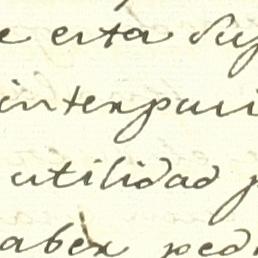 e esta sup
interpuri
utilidad p
aber ped